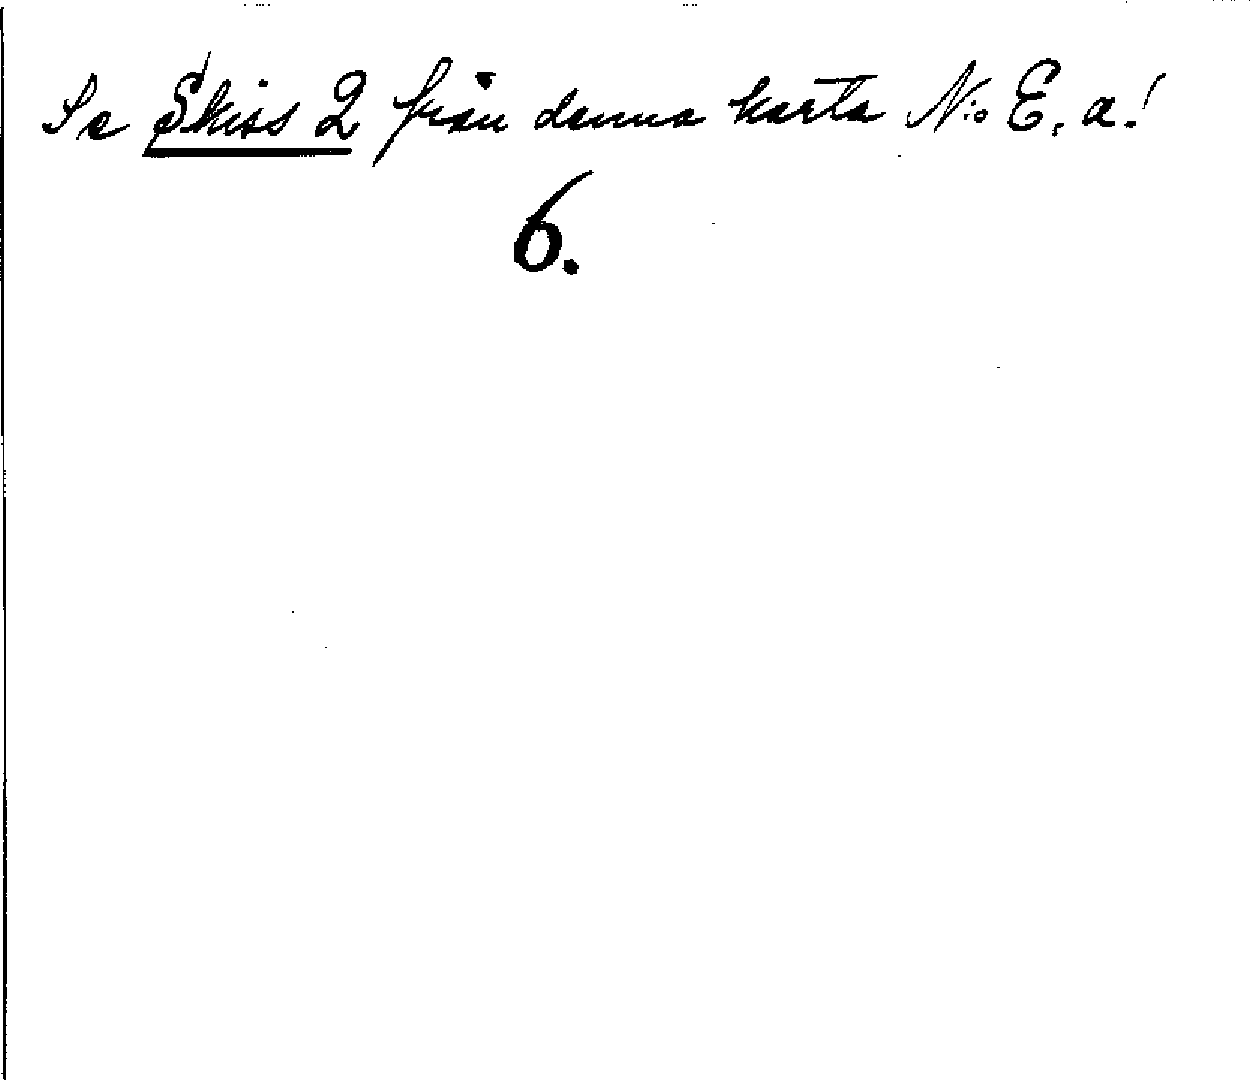 Se Skiss 2 från denna karta N:o E, a!
6.